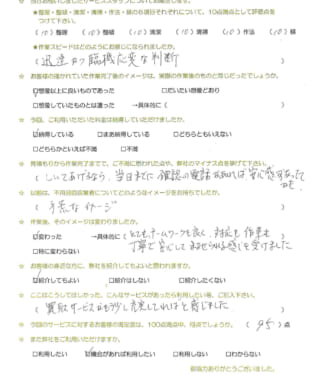 ☆ 当日お伺いしましたサービススタッフについてお聞きします。
★整理・整頓・清潔・清掃・作法・躾の6項目それぞれについて、10点満点として評価点をつけて下さい。
(10)整理 (10)整頓 (10)清潔 (10)清掃 (10)作法 (10)躾
★作業スピードはどのようにお感じになられましたか。
( 迅速かつ臨機応変な判断 )
☆ お客様の描かれていた作業完了後のイメージは、実際の作業後のものと同じだったでしょうか。
☑想像以上に良いものであった □だいたい想像どおり
□想像していたものとは違った →具体的に( )
☆ 今回、ご利用いただいた料金は納得していただけましたか。
☑納得している □まあ納得している □どちらともいえない
□どちらかといえば不満 □不満
☆ 見積もりから作業完了までで、ご不満に思われた点や、弊社のマイナス点を挙げて下さい。
( しいてあげるなら、当日までに確認の電話があれば安心感があったかも。
☆ 以前は、不用品回収業者についてどのようなイメージをお持ちでしたか。
( 手荒なイメージ )
☆ 作業後、そのイメージは変わりましたか。
☑変わった →具体的に( とてもチームワークも良く、対応も作業も
丁寧で安心してまかせられる感じを受けました
□特に変わらない
☆ お客様の身近な方に、弊社を紹介してもよいと思われますか。
☑紹介してもよい □紹介はしない □紹介したくない
☆ ここはこうしてほしかった、こんなサービスがあったら利用したい等、ご記入下さい。
( 買取サービスがもう少し充実していればと感じました )
☆ 今回のサービスに対するお客様の満足度は、100点満点中、何点でしょうか。 ( 95 )点
☆ また弊社をご利用いただけますか。
□利用したい ☑機会があれば利用したい □利用しない □わからない
ご協力ありがとうございました。